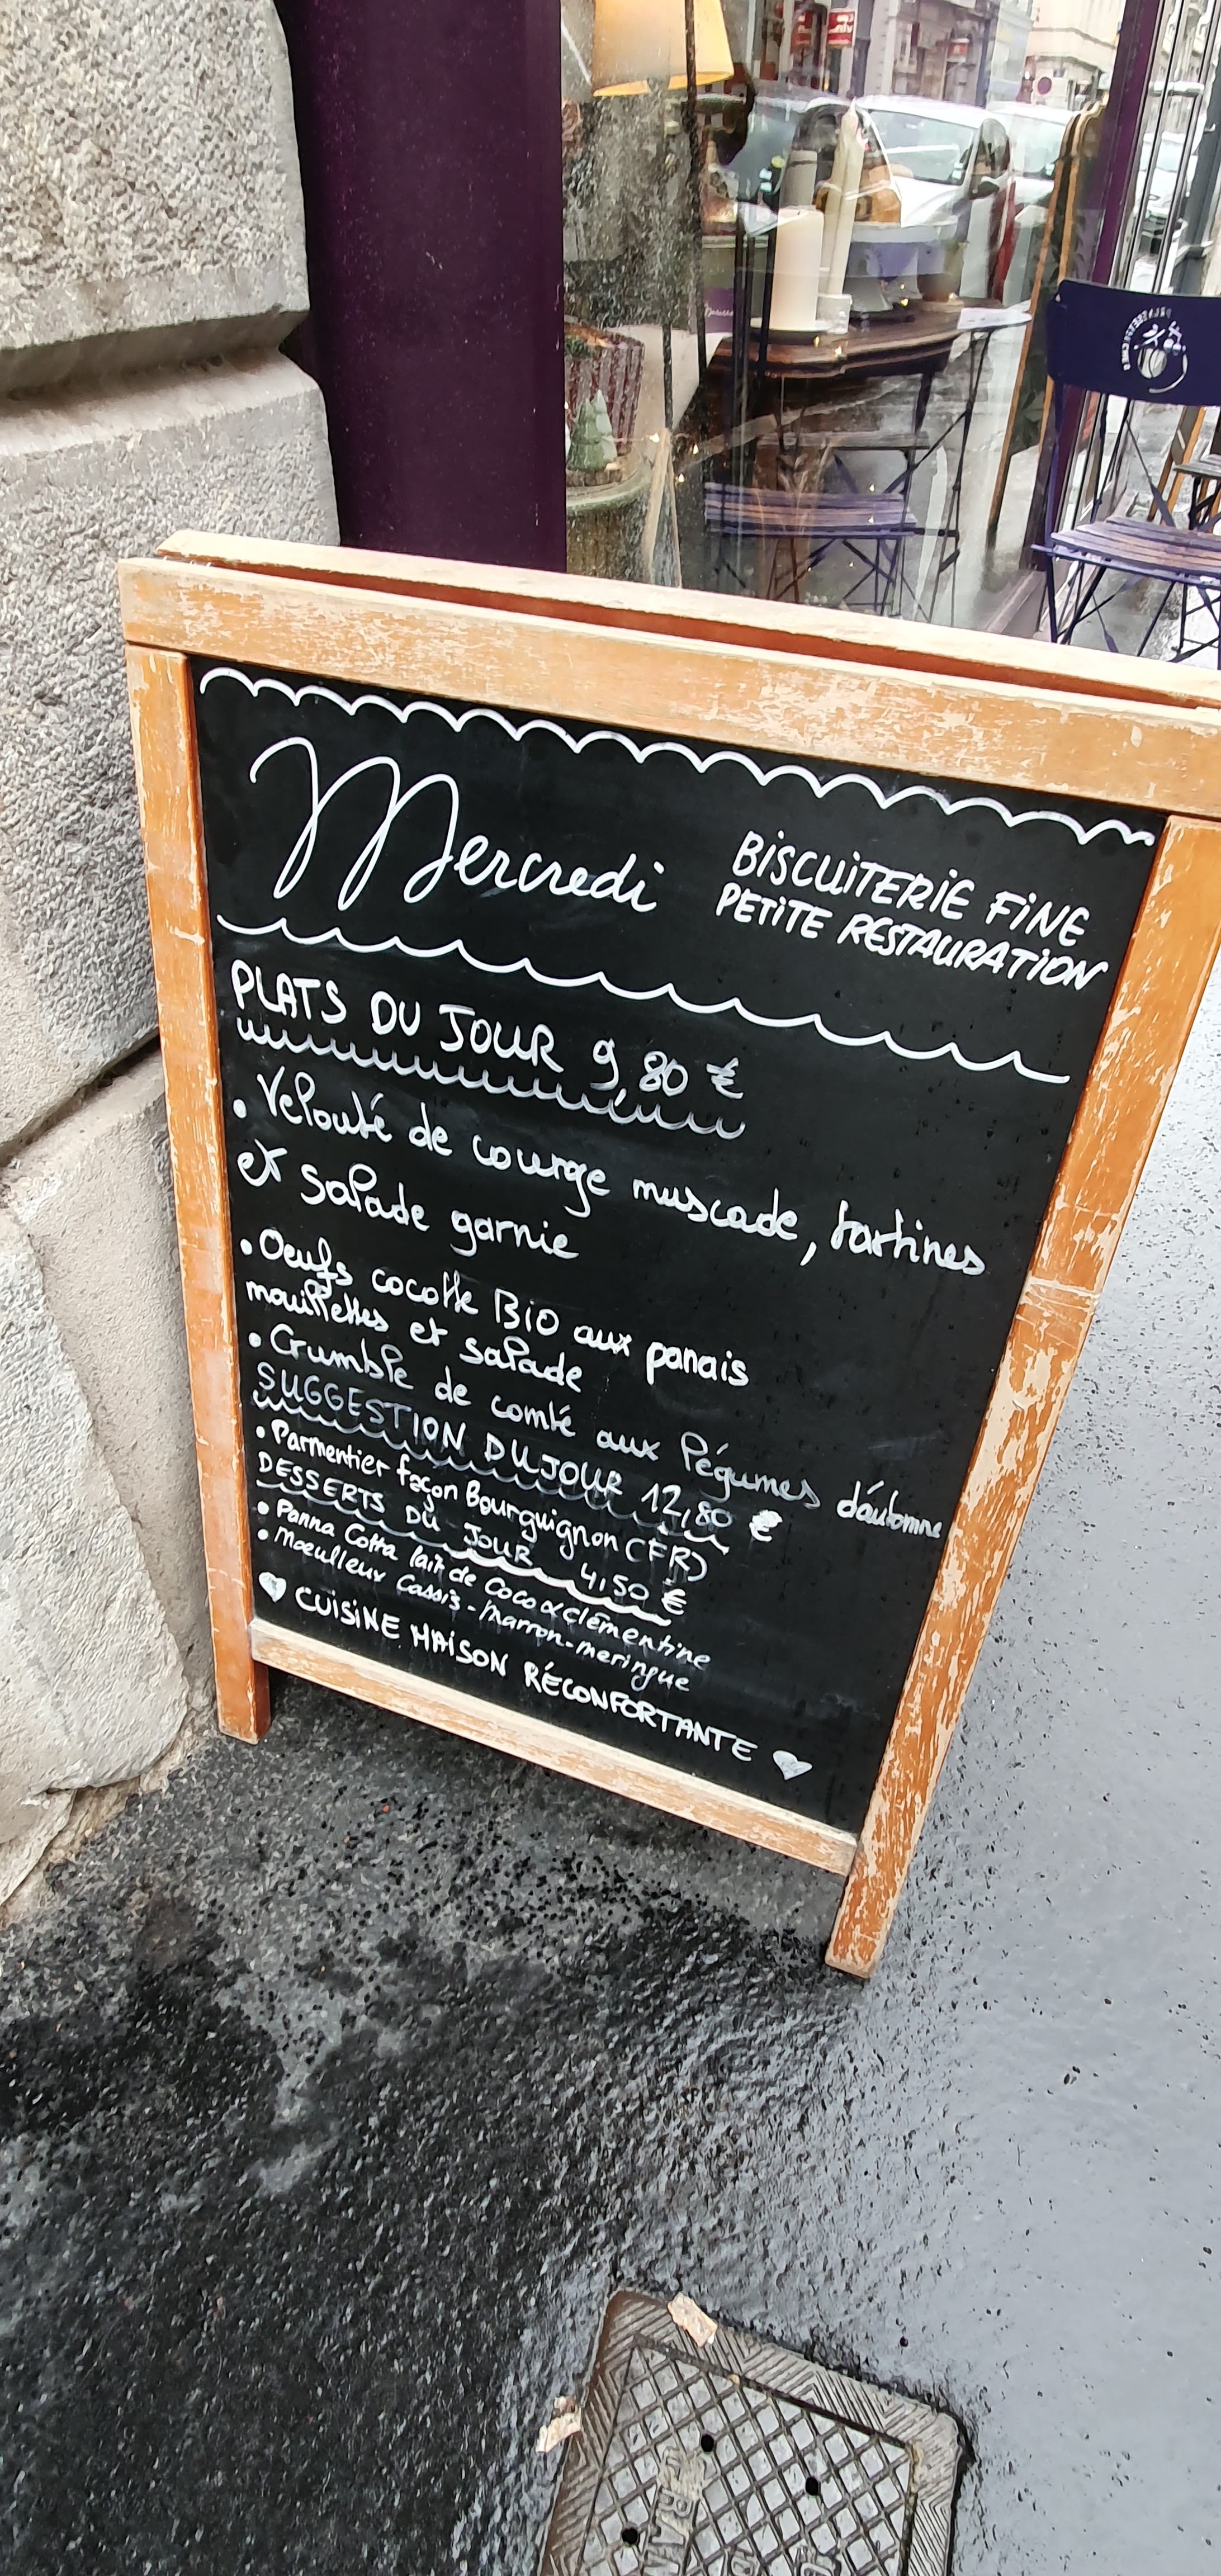 Mercredi
BISCUITERIE FINE
PETITE RESTAURATION
PLATS DU JOUR 9,80 €
• Velouté de courge muscade, tartines
et salade garnie
• Oeufs cocotte BiO aux panais
mouillettes et salade
• Crumble de comté aux légumes d'automne
SUGGESTION DU JOUR 12,80 €
• Parmentier façon Bourguignon (FR)
DESSERTS DU JOUR 4,50 €
• Panna Cotta lait de Coco & clémentine
• Moeulleux Cassis - Marron - meringue
♥ CUISINE MAISON RÉCONFORTANTE ♥